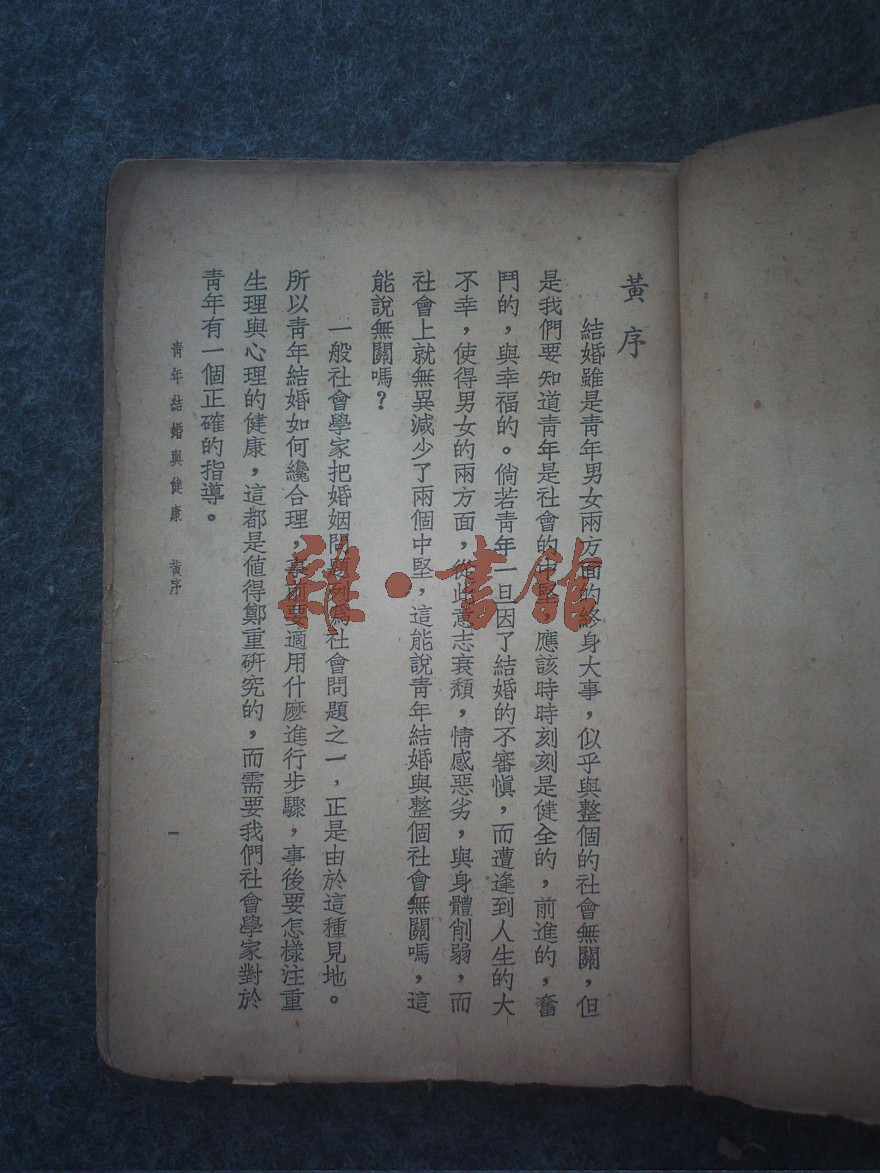 黃序
結婚雖是靑年男女兩方面的終身大事，似乎與整個的社會無關，但
是我們要知道靑年是社會的中堅，應該時時刻刻是健全的，前進的，奮
鬥的，與幸福的。倘若靑年一旦因了結婚的不審愼，而遭逢到人生的大
不幸，使得男女的兩方面，從此意志衰頹，情感惡劣，與身體削弱，而
社會上就無異減少了兩個中堅，這能說靑年結婚與整個社會無關嗎，這
能說無關嗎？
一般社會學家把婚姻問題列爲社會問題之一，正是由於這種見地。
所以靑年結婚如何纔合理，事前要適用什麽進行步驟，事後要怎樣注重
生理與心理的健康，這都是値得鄭重硏究的，而需要我們社會學家對於
靑年有一個正確的指導。
靑年結婚與健康　黃序
一
雜·書館